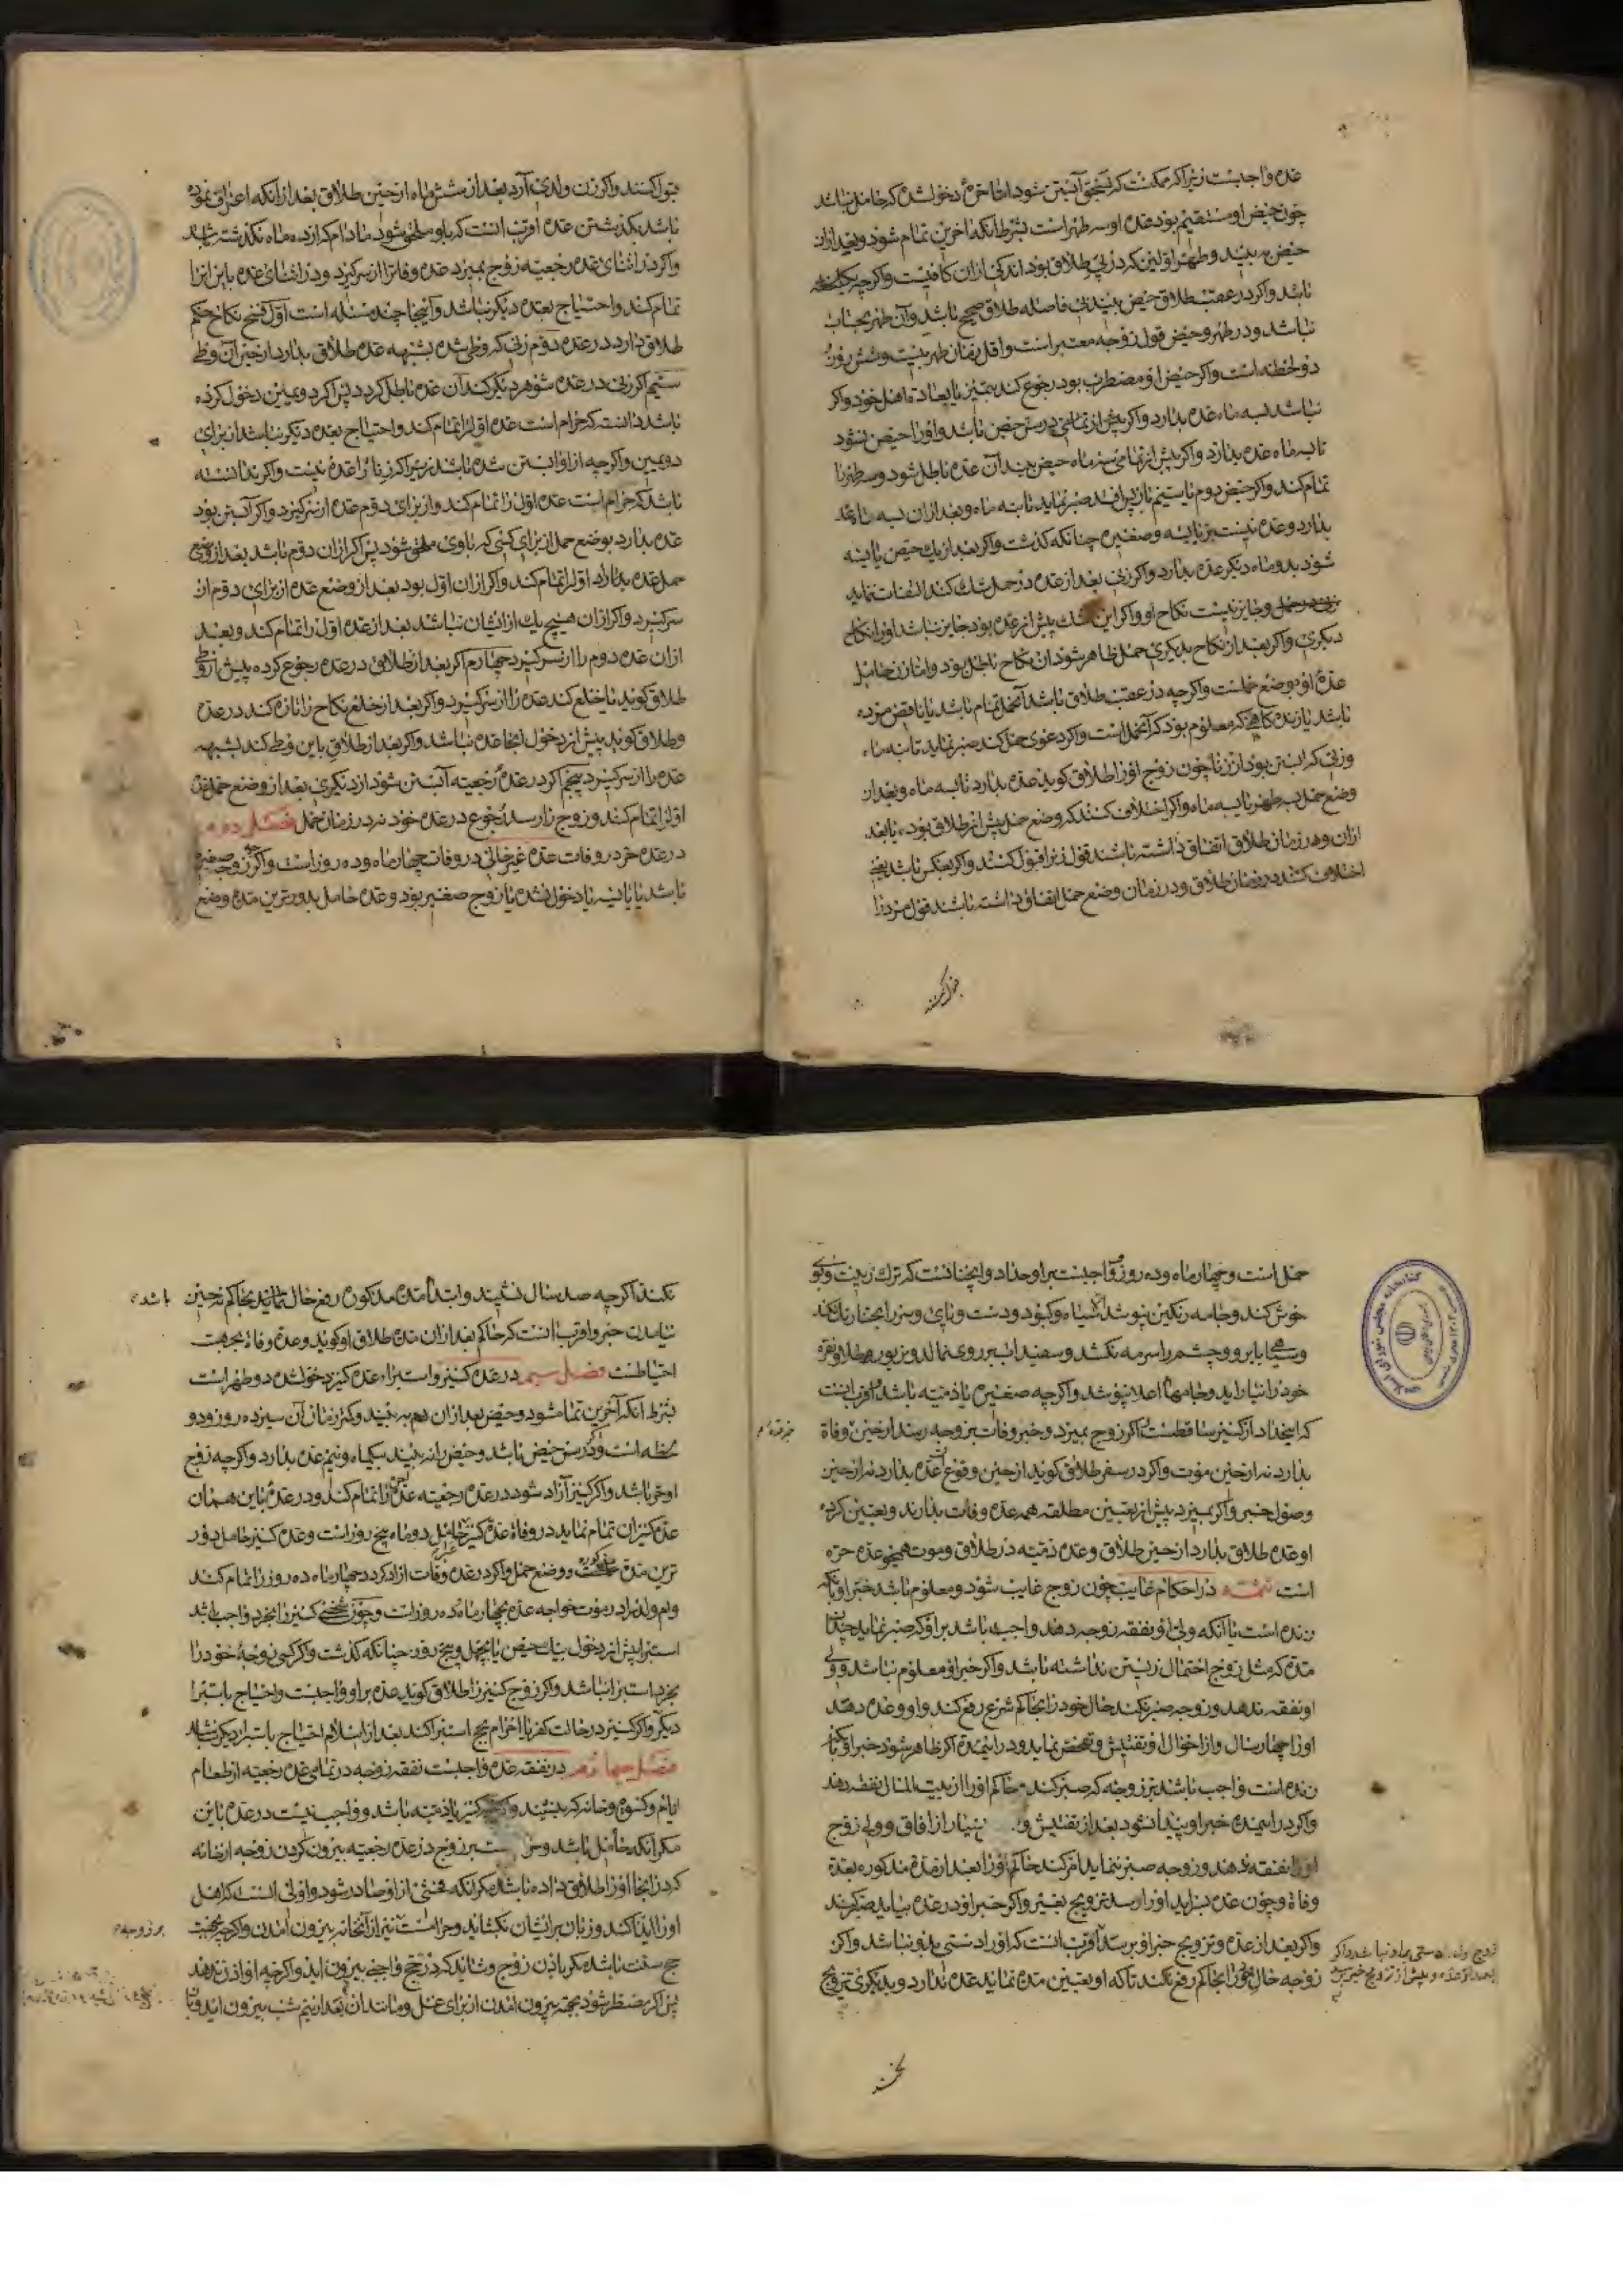 عده واجبست زیرا که ممکنست که بتحقیق آبستن شود اما حره دخول شده که حامل نباشد
چون حیض او مستقیم بود عده او سه طهر است بشرط آنکه آخرین تمام شود و بعد از ان
حیض به بیند و طهر اولین که در پی طلاق بود اندکی از ان کافیست و اگر چه یکلحظه
باشد و اگر در عقب طلاق حیض بیند بی فاصله طلاق صحیح باشد و آن طهر بحساب
نباشد و در طهر و حیض قول زوجه معتبر است و اقل زمان طهر بیست و شش روز
دو لحظه است و اگر حیض او مضطرب بود رجوع کند بتمیز یا بعادة اهل خود و اگر
نباشد بسه ماه عده بدارد و اگر پیش از تمامی در سن حیض باشد و او را حیض نشود
تا سه ماه عده بدارد و اگر پیش از تمامی سه ماه حیض بیند آن عده باطل شود و سه طهر را
تمام کند و اگر حیض دوم یا سیم باز پس افتد صبر نماید تا نه ماه و بعد از ان سه ماه عده
بدارد و عده نیست بر یائسه و صغیره چنانکه گذشت و اگر بعد از یک حیض یائسه
شود بدو ماه دیگر عده بدارد و اگر زنی بعد از عده در حمل شک کند التفات ننماید
وجایز نیست نکاح او و اگر این شک پیش از عده بود جایز نباشد او را نکاح
دیگری و اگر بعد از نکاح بدیگری حمل ظاهر شود ان نکاح باطل بود و اما زن حامل
عدهٔ او بوضع حملست و اگر چه در عقب طلاق باشد آنحمل تمام باشد یا ناقص مرده
باشد یا زنده گاهی که معلوم بود که آنحمل است و اگر دعوی حمل کند صبر نماید تا نه ماه
و زنی که ابستن بود از زنا چون زوج او را طلاق گوید عده بدارد تا سه ماه و بعد از
وضع حمل به طهر یا سه ماه و اگر اختلاف کنند که وضع حمل پیش از طلاق بوده یا بعد
ازان و هر زمان طلاق اتفاق داشته باشند قول زن را قبول کنند و اگر بعکس باشد یعنی
اختلاف کنند در زمان طلاق و در زمان وضع حمل اتفاق داشته باشند قول مرد را
قبول کنند
قبول کنند و اگر زن ولدی آرد بعد از شش ماه از حین طلاق بعد از انکه اعتراف نموده
باشد بگذشتن عده اقرب انست که باو ملحق شود مادام که از ده ماه نگذشته باشد
و اگر در اثنای عده رجعیه زوج بمیرد عده وفاة را از سر گیرد و در اثنای عده باین انرا
تمام کند و احتیاج بعده دیگر نباشد و اینجا چند مسئله است اول فسخ نکاح حکم
طلاق دارد در عده دوم زنی که وطی شده بشبهه عده طلاق بدارد از حین آن وطی
سیم اگر زنی در عده شوهر دیگر کند آن عده باطل گردد پس اگر دویمین دخول کرده
باشد دانست که حرام است عده اول را تمام کند و احتیاج بعده دیگر نباشد از برای
دویمین و اگر چه از او ابستن شده باشد زیرا که زنا را عده نیست و اگر ندانسته
باشد که حرام است عده اول را تمام کند و از برای دوم عده از سر گیرد و اگر آبستن بود
عده بدارد بوضع حمل از برای کسی که باوی ملحق شود پس اگر ازان دوم باشد بعد از وضع
حمل عده بدارد اول را تمام کند و اگر ازان اول بود بعد از وضع عده از برای دوم از
سر گیرد و اگر ازان هیچ یک از ایشان نباشد بعد از عده اول را تمام کند و بعد
ازان عده دوم را از سر گیرد چهارم اگر بعد از طلاق در عده رجوع کرده پیش از وطی
طلاق گوید یا خلع کند عده را از سر گیرد و اگر بعد از خلع نکاح را تازه کند در عده
و طلاق گوید پیش از دخول اینجا عده نباشد و اگر بعد از طلاق باین وطی کند بشبهه
عده را از سر گیرد پنجم اگر در عدهٔ رجعیه آبستن شود از دیگری بعد از وضع حمل عده
اول را تمام کند و زوج را رسد رجوع در عده خود نه در زمان حمل فصل دوم
در عده حره در وفات عده غیر حامل در وفات چهار ماه و ده روز است و اگر زوجه صغیره
باشد یا یائسه یا دخول نشده یا زوج صغیر بود و عده حامل بدورترین مده وضع
حمل است و چهار ماه و ده روز و واجبست بر او حداد و اینجا آنست که ترک زینت و بوی
خوش کند و جامه رنگین نپوشد الا سیاه و کبود و دست و پای و سر را بحنا رنگ نکند
و سیاهی بابرو و چشم را سرمه نکشد و سفیداب بر روی نمالد و زیور طلا و نقره
خود را نیاراید و جامهاء اعلا نپوشد و اگر چه صغیره یا ذمیه باشد و اقرب انست
که این حداد از کنیز ساقطست و اگر زوج بمیرد و خبر وفات بزوجه رسد از حین وفاة
بدارد نه از حین موت و اگر در سفر طلاق گوید از حین وقوع آن عده بدارد نه از حین
وصول خبر و اگر بمیرد پیش از تعیین مطلقه همه عده وفات بدارند و تعیین کرده
او عده طلاق بدارد از حین طلاق و عده ذمیه در طلاق و موت همچو عده حره
است تتمه در احکام غایب چون زوج غایب شود و معلوم باشد خبر او یا آنکه
زنده است یا آنکه ولی او نفقه زوجه دهد واجب باشد بر او که صبر نماید چندانی
مده که مثل زوج احتمال زیستن نداشته باشد و اگر خبر او معلوم نباشد و ولی
او نفقه ندهد و زوجه صبر نکند حال خود را بحاکم شرع رفع کند و او وعده دهد
او را چهار سال و از احوال او تفتیش و تفحص نماید و در اینمدة اگر ظاهر شود خبر او یا آنکه
زنده است واجب باشد بر زوجه که صبر کند و حاکم او را از بیت المال نفقه دهد
و اگر در اینمده خبر او پیدا نشود بعد از تفتیش و بسیار از آفاق و ولی زوج
او را نفقه ندهد و زوجه صبر ننماید امر کند حاکم او را بعد از مدة مذکوره بعدة
وفاة و چون عده بسراید او را رسد تزویج بغیر و اگر خبر او در عده بیاید صبر کند
و اگر بعد از عده و تزویج خبر او برسد اقرب انست که او را دستی بدو نباشد و اگر
زوجه حال خود را بحاکم رفع نکند تا که او تعیین مده نماید عده ندارد و بدیگری تزویج
نکند
نکند اگر چه صد سال نشیند و ابتداء مده مذکوره رفع حال نماید بحاکم نه حین باشد
نیامدن خبر و اقرب انست که حاکم بعد از ان مده طلاق او گوید و عدة وفاة بجهت
احتیاطست فصل سیم در عده کنیز و استبراء عده کنیز دخول شده دو طهر است
بشرط آنکه آخرین تمام شود و حیض بعد از ان هم به بیند و کمتر زمان آن سیزده روز و دو
لحظه است و اگر در سن حیض باشد و حیض را نه بیند بیکماه و نیم عده بدارد و اگر چه زوج
او حر باشد و اگر کنیز آزاد شود در عده رجعیه عده حره را تمام کند و در عدهٔ باین همان
عده کنیزان تمام نماید در وفاة عدة کنیز حامل دو ماه پنج روز است و عده کنیز حامل دور
ترین مدة و وضع حمل و اگر در عده وفات ازاد گردد چهار ماه ده روز را تمام کند
و ام ولد را در موت خواجه عده چهار ماه ده روز است و چون شخصی کنیز را بخرد واجب باشد
استبرا پیش از دخول بیک حیض یا بچهل و پنج روز چنانکه گذشت و اگر کسی زوجهٔ خود را
بخرد استبرا نباشد و اگر زوج کنیز را طلاق گوید عده بر او واجبست و احتیاج باستبرا
دیگر و اگر کنیز در حالت کفر یا احرام بحج استبرا کند بعد از اسلام احتیاج باستبراء دیگر نباشد
فصل چهارم در نفقه عده واجبست نفقه زوجه در تمامی عده رجعیه از طعام
ایام و کسوه و خانه که بنشیند و اگر چه کنیز یا ذمیه باشد و واجب نیست در عده باین
مگر انکه حامل باشد و بر زوج در عده رجعیه بیرون کردن زوجه از خانه
که در انجا او را طلاق داده باشد مگر آنکه فحشی از او صادر شود و اولی انست که اهل
او را ایذا کند و زبان بر ایشان بگشاید و حرامست نیز از آنخانه بیرون آمدن و اگر چه بجهت
حج سنت باشد مگر باذن زوج و شاید که در حج واجبی بیرون اید و اگر چه او اذن ندهد
پس اگر مضطر شود بجهة بیرون امدن از برای غسل و مانند ان بعد از نیم شب بیرون اید و تا
بر زوجه